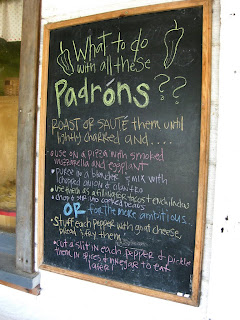 What to do
with all these
Padróns??
ROAST OR SAUTÉ them until
lightly charred and....
• use on a pizza with smoked
mozzarella and eggplant
• puree in a blender & mix with
chopped onion & cilantro
• use them as a filling for tacos & enchiladas
• chop & stir into cooked beans
OR for the more ambitious..
• Stuff each pepper with goat cheese
bread & fry them
• Cut a slit in each pepper & pickle
them in spices & vinegar to eat
later!